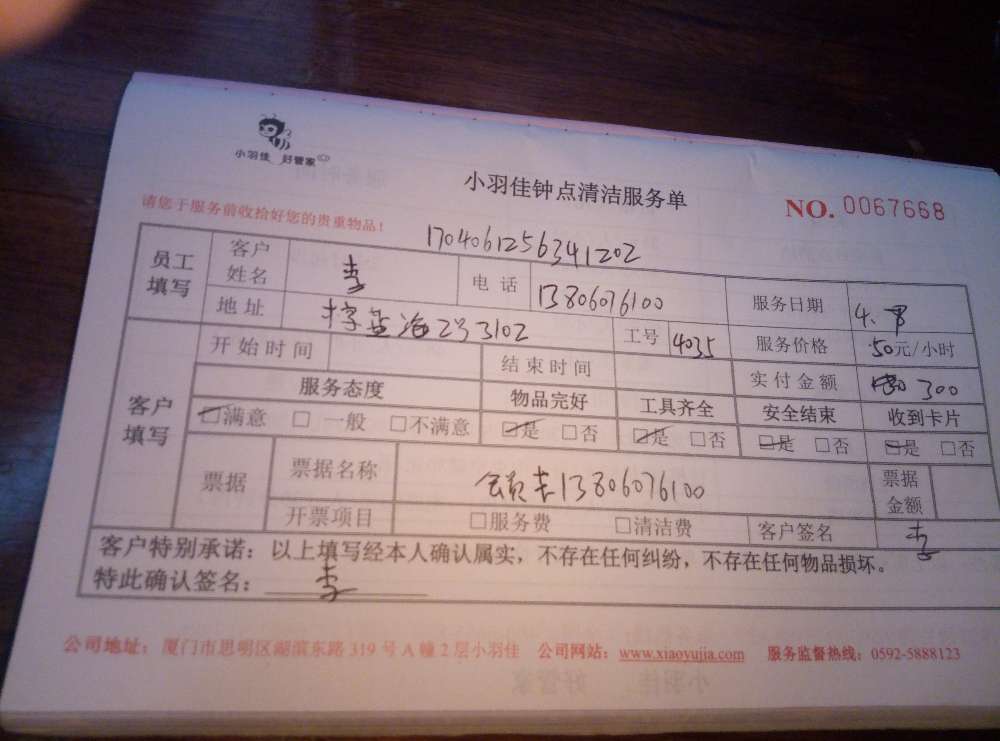 小羽佳 好管家
小羽佳钟点清洁服务单
NO. 0067668
请您于服务前收拾好您的贵重物品！
1704061256341202
员工填写 客户姓名 李 电话 13806076100 服务日期 4.
地址 海2号3102 工号 4035 服务价格 50元/小时
客户填写 开始时间 结束时间 实付金额 300
服务态度 物品完好 工具齐全 安全结束 收到卡片
☑满意 □一般 □不满意 ☑是 □否 ☑是 □否 ☑是 □否 ☑是 □否
票据 票据名称 会员卡13806076100 票据金额
开票项目 □服务费 □清洁费 客户签名 李
客户特别承诺：以上填写经本人确认属实，不存在任何纠纷，不存在任何物品损坏。
特此确认签名：李
公司地址：厦门市思明区湖滨东路319号A幢2层小羽佳 公司网站：www.xiaoyujia.com 服务监督热线：0592-5888123